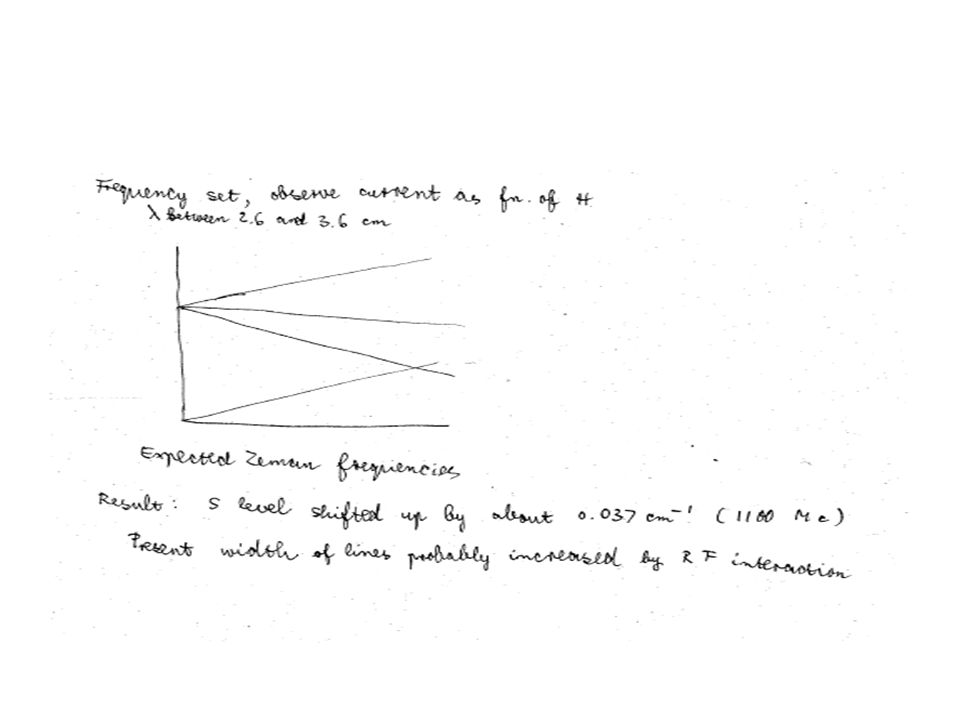 Frequency set, observe current as fn. of H
λ between 2.6 and 3.6 cm
Expected Zeman frequencies
Result: S level shifted up by about 0.037 cm⁻¹ (1100 Mc)
Present width of lines probably increased by RF interaction